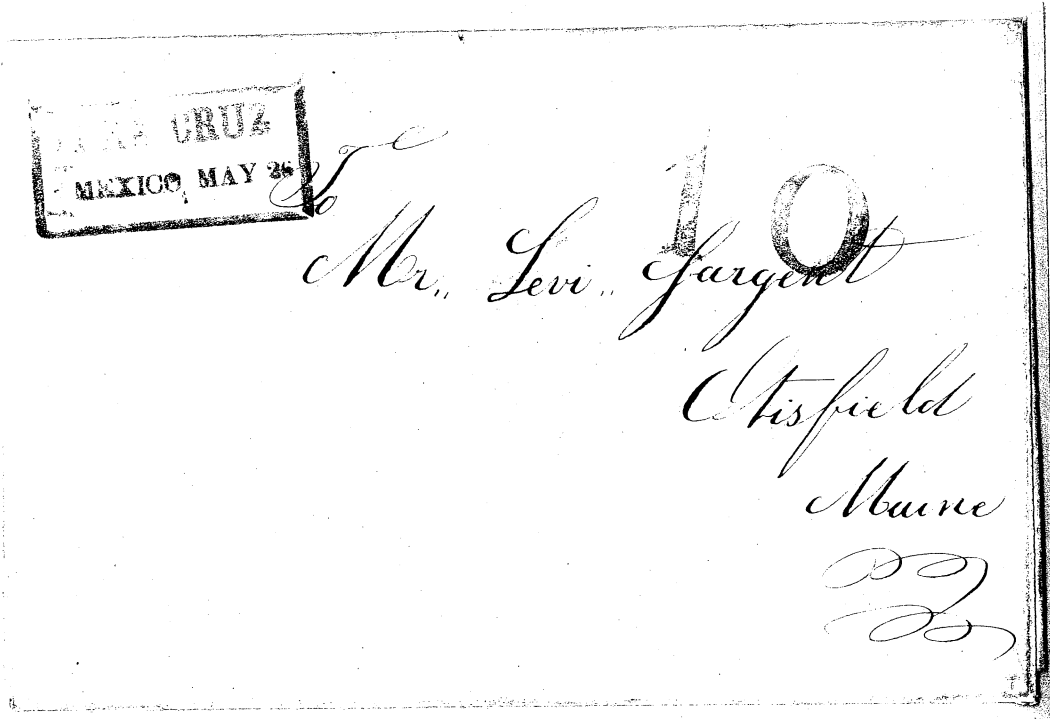 VERA CRUZ
MEXICO, MAY 26
10
To
Mr,, Levi,, Sargent
Otisfield
Maine